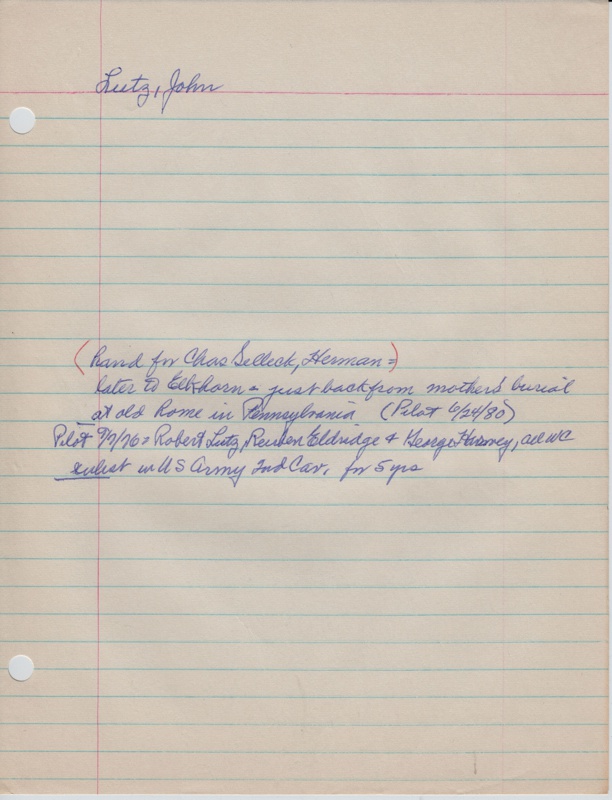 Lutz, John
(hand for Chas Selleck, Herman =)
later to Elkhorn = just back from mother's burial
at old home in Pennsylvania (Pilot 6/24/80)
Pilot 9/7/76 = Robert Lutz, Reuben Eldridge & George Harvey, all WC
enlist in US Army 2nd Cav. for 5 yrs